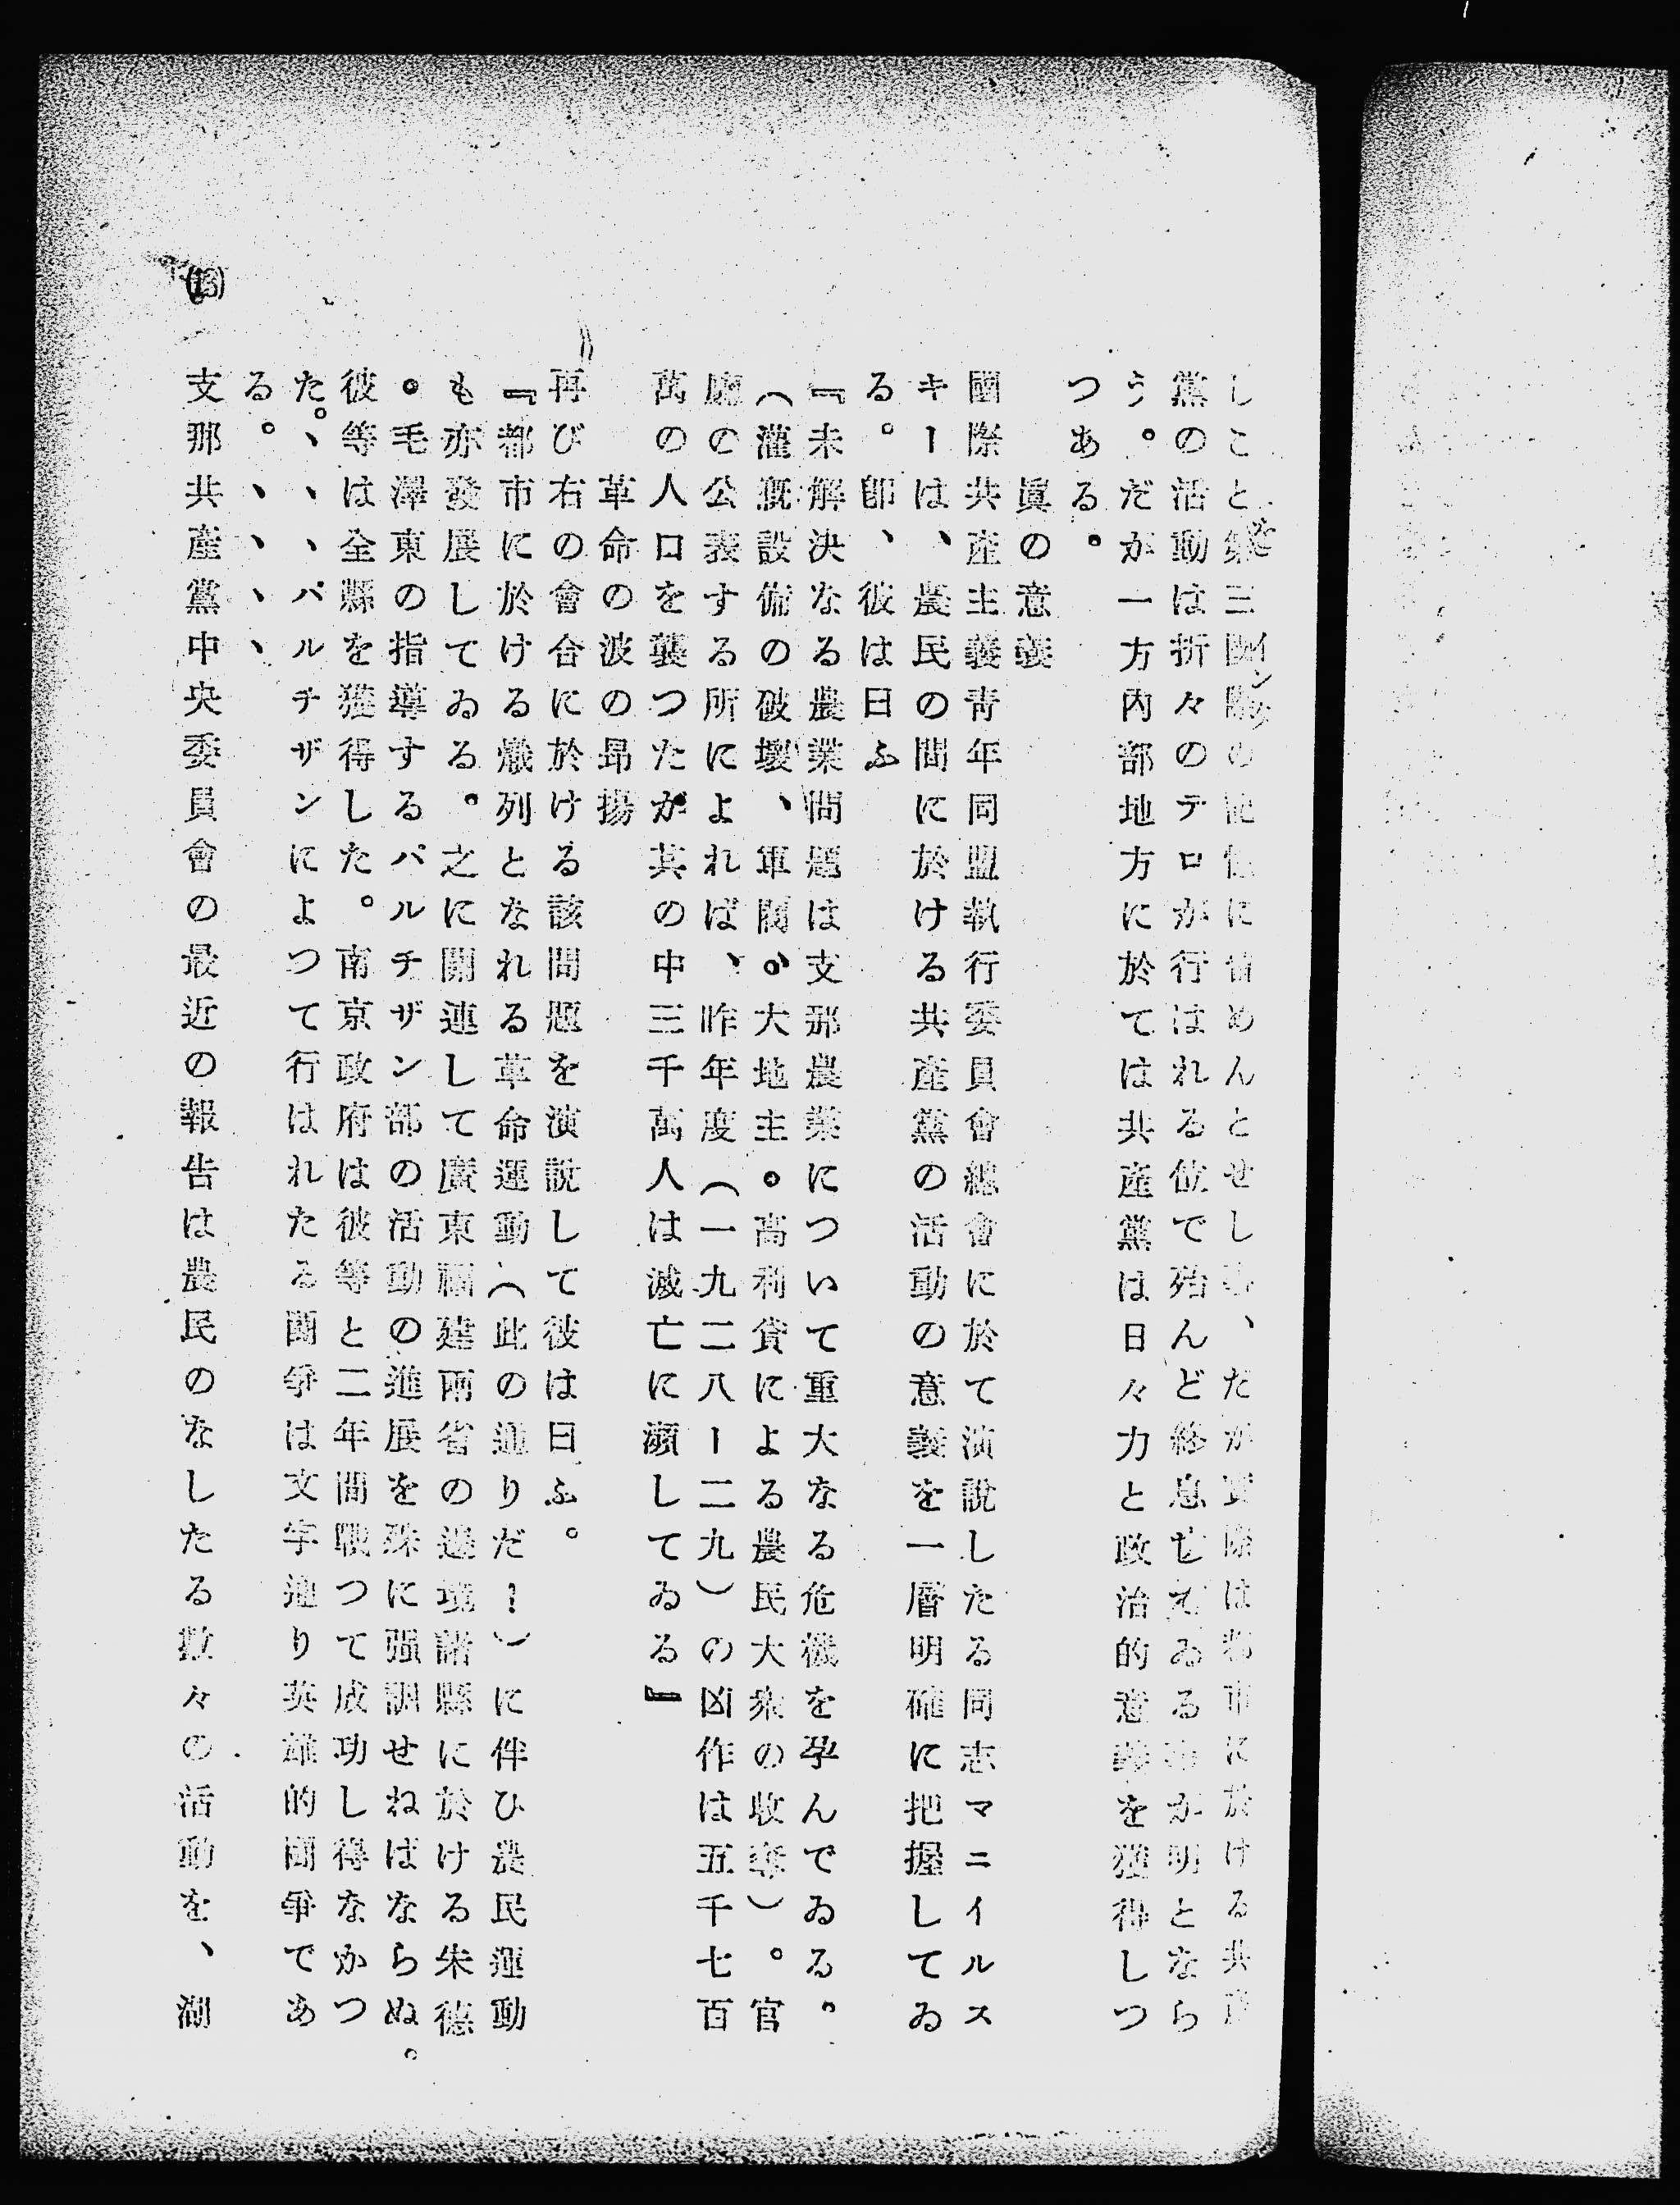 しことを第三國際の記憶に留めんとせし、だが實際は都市に於ける共産
黨の活動は折々のテロが行はれる位で殆んど終息してゐる事が明となら
う。だが一方內部地方に於ては共產黨は日々力と政治的意義を獲得しつ
つある。
眞の意義
國際共產主義靑年同盟執行委員會總會に於て演說したる同志マニイルス
キーは、農民の間に於ける共產黨の活動の意義を一層明確に把握してゐ
る。卽、彼は曰ふ
『未解決なる農業問題は支那農業について重大なる危機を孕んでゐる。
（灌漑設備の破壞、軍閥。大地主。高利貸による農民大衆の收奪）。官
廳の公表する所によれば、昨年度（一九二八ー二九）の凶作は五千七百
萬の人口を襲つたが其の中三千萬人は滅亡に瀕してゐる』
革命の波の昻揚
再び右の會合に於ける該問題を演說して彼は曰ふ。
『都市に於ける熾列となれる革命運動（此の通りだ！）に伴ひ農民運動
も亦發展してゐる。之に關連して廣東福建兩省の邊境諸縣に於ける朱德
。毛澤東の指導するパルチザン部の活動の進展を殊に强調せねばならぬ。
彼等は全縣を獲得した。南京政府は彼等と二年間戰つて成功し得なかつ
た。、、、パルチザンによつて行はれたる鬪爭は文字通り英雄的鬪爭であ
る。、、、、
支那共產黨中央委員會の最近の報告は農民のなしたる數々の活動を、湖
(13)